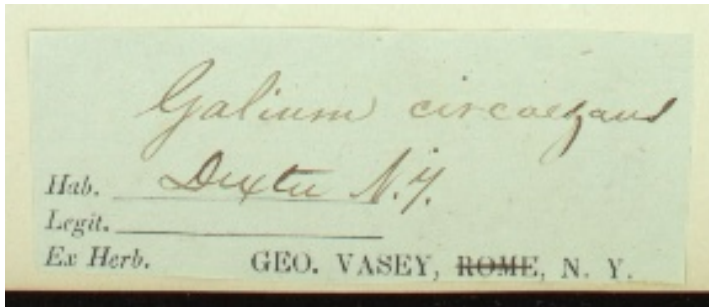 Galium circaezans
Hab. Dexter N.Y.
Legit.
Ex Herb. GEO. VASEY, ROME, N. Y.